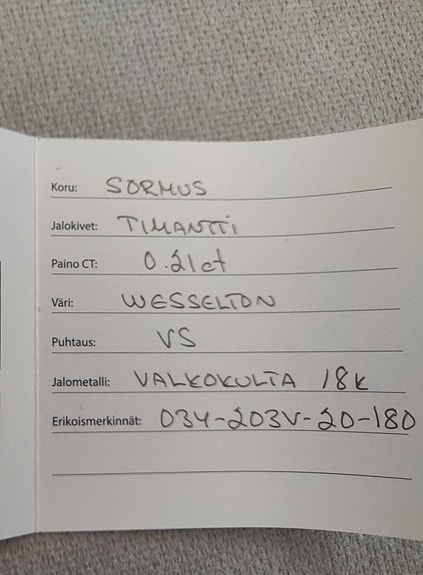 Koru: SORMUS
Jalokivet: TIMANTTI
Paino CT: 0.21ct
Väri: WESSELTON
Puhtaus: VS
Jalometalli: VALKOKULTA 18K
Erikoismerkinnät: 034-203V-20-180